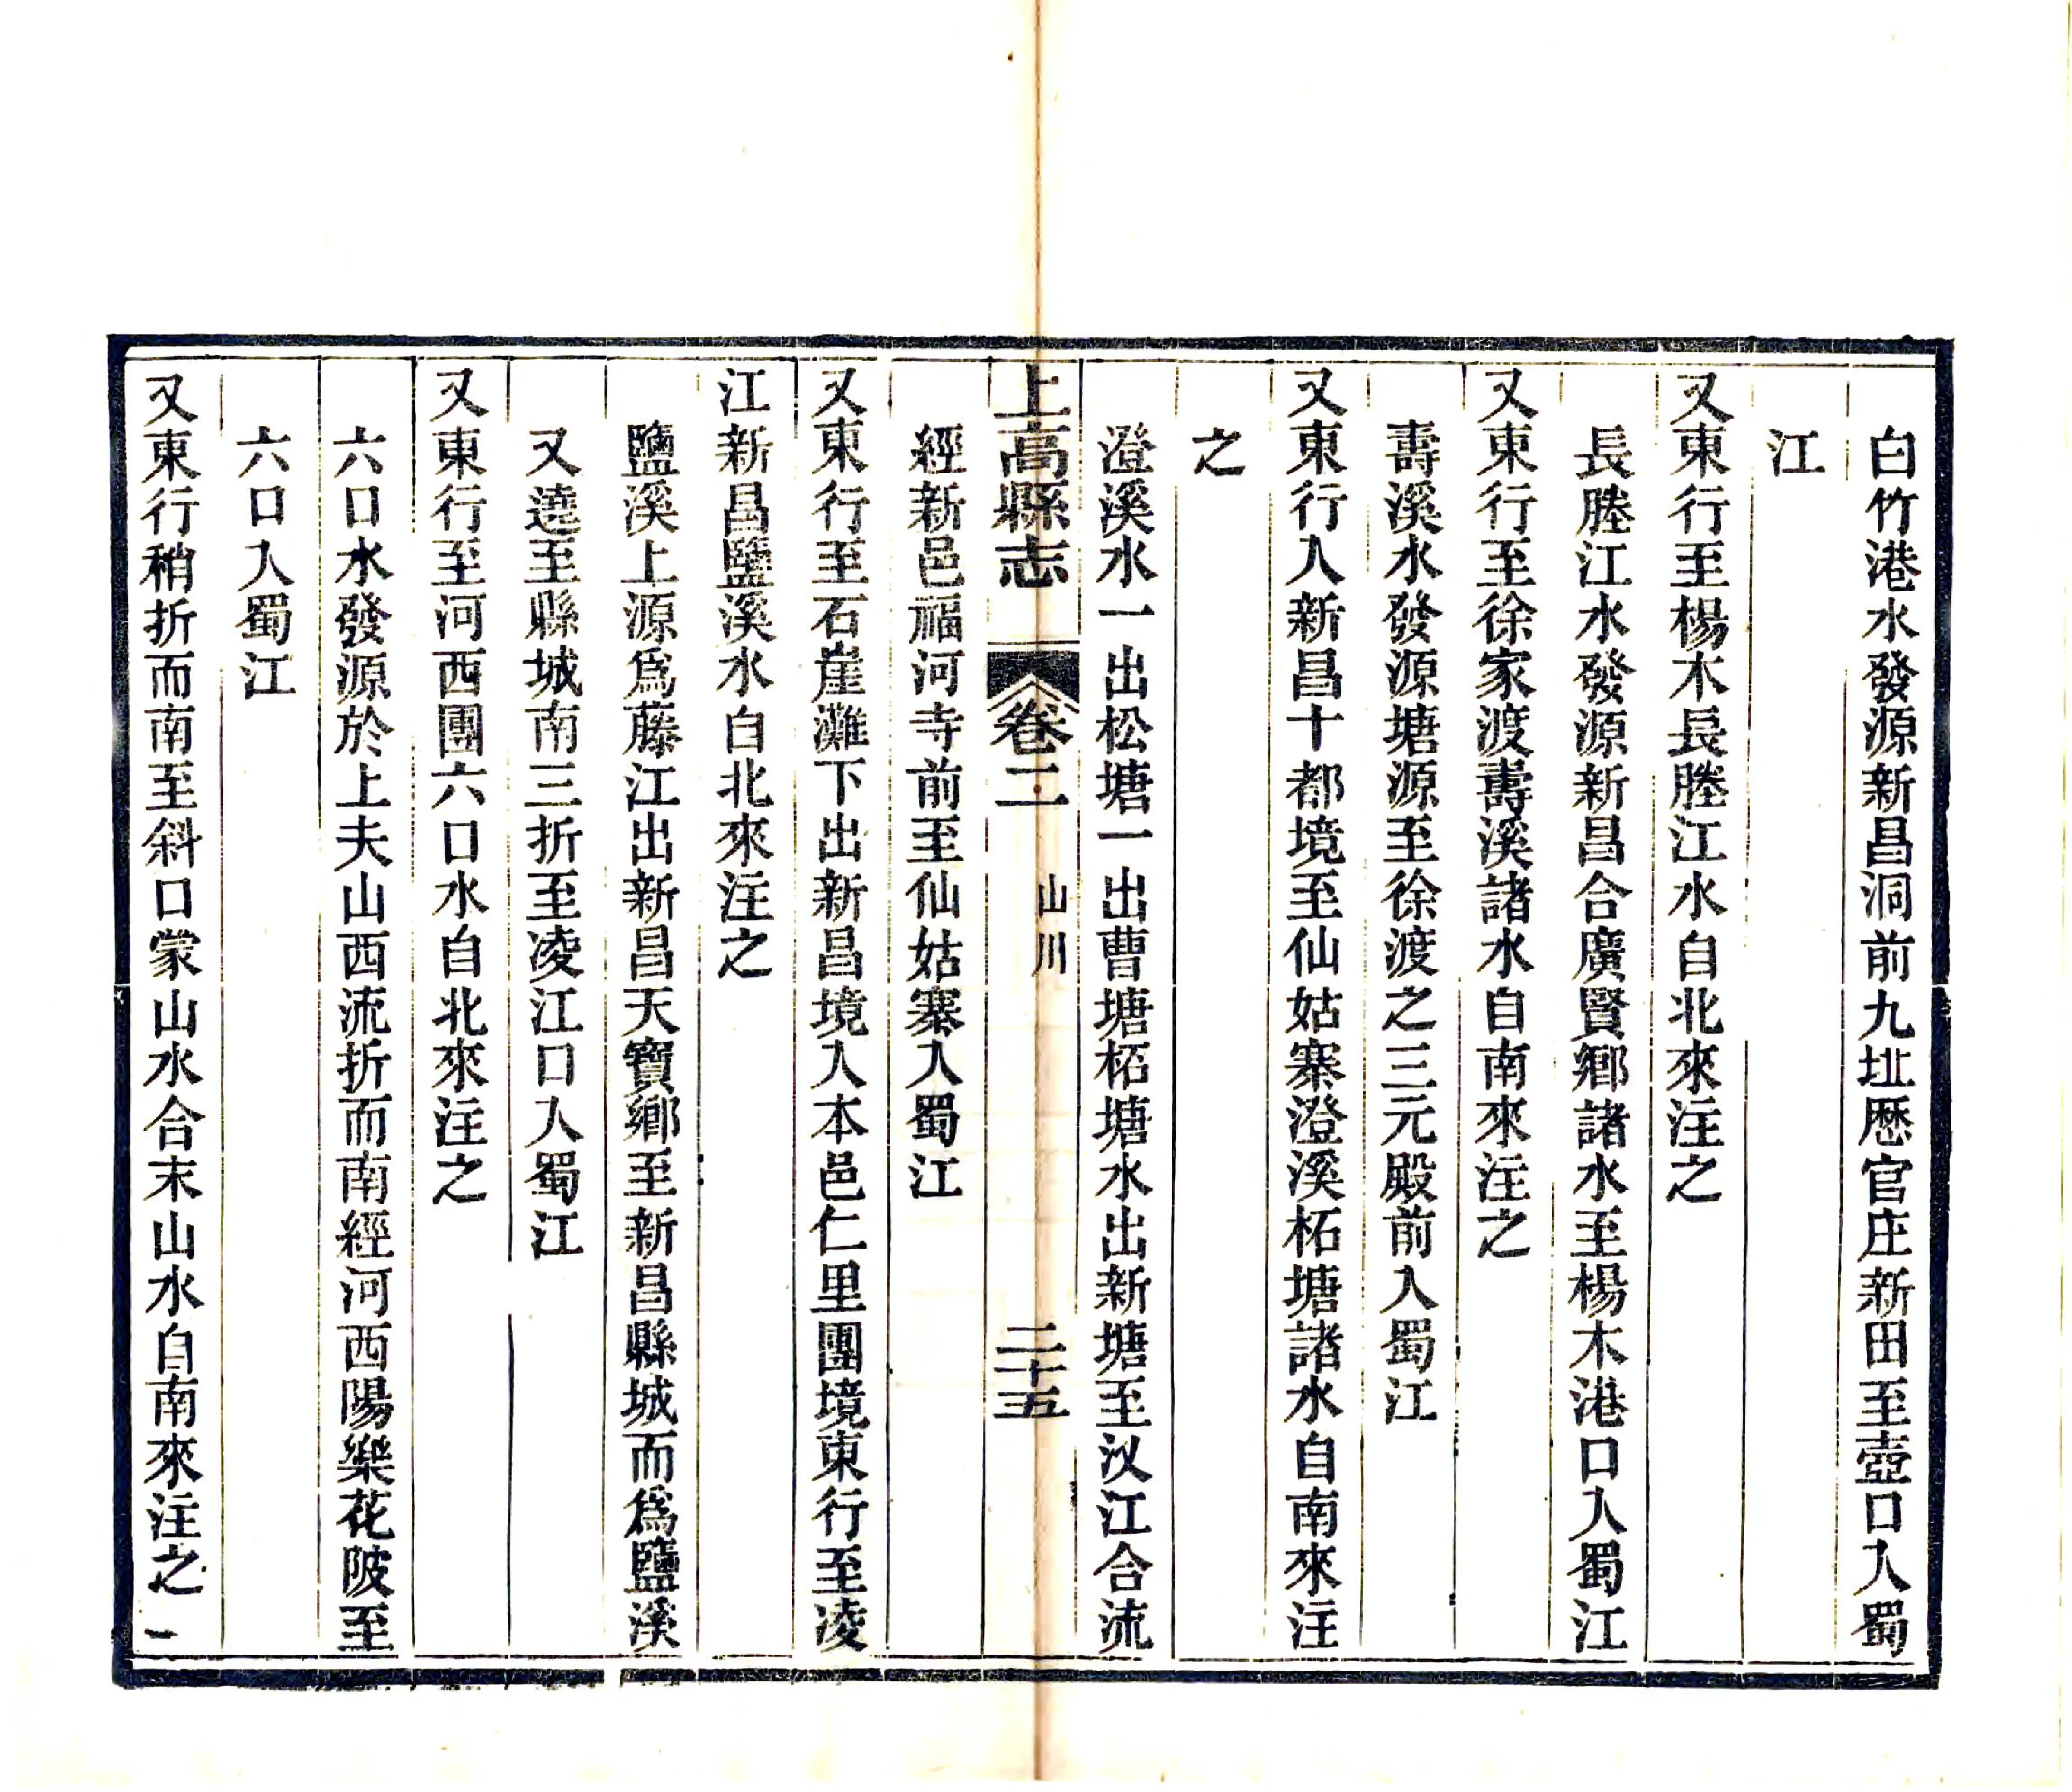 白竹港水發源新昌洞前九㘰歷官庄新田至壺口入蜀
江
又東行至楊木長塍江水自北來注之
長塍江水發源新昌合廣賢鄉諸水至楊木港口入蜀江
又東行至徐家渡壽溪諸水自南來注之
壽溪水發源塘源至徐渡之三元殿前入蜀江
又東行入新昌十都境至仙姑寨澄溪柘塘諸水自南來注
之
澄溪水一出松塘一出曹塘柘塘水出新塘至汊江合流
上高縣志 卷二 山川 二十五
經新邑福河寺前至仙姑寨入蜀江
又東行至石崖灘下出新昌境入本邑仁里團境東行至凌
江新昌鹽溪水自北來注之
鹽溪上源爲藤江出新昌天寶鄉至新昌縣城而爲鹽溪
又遶至縣城南三折至凌江口入蜀江
又東行至河西團六口水自北來注之
六口水發源於上夫山西流折而南經河西陽樂花陂至
六口入蜀江
又東行稍折而南至斜口蒙山水合末山水自南來注之